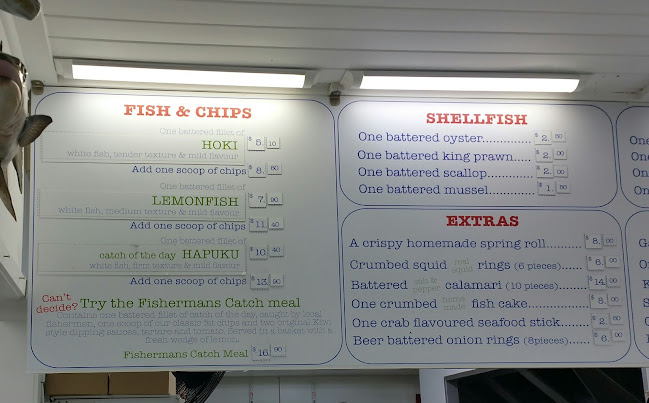 FISH & CHIPS
One battered fillet of
HOKI $5.10
white fish, tender texture & mild flavour
Add one scoop of chips $8.60
One battered fillet of
LEMONFISH $7.90
white fish, medium texture & mild flavour
Add one scoop of chips $11.40
One battered fillet of
catch of the day HAPUKU $10.40
white fish, firm texture & mild flavour
Add one scoop of chips $13.90
Can't decide? Try the Fishermans Catch meal
Contains one battered fillet of catch of the day, caught by local
fishermen, one scoop of our classic fat chips and two original Kiwi
style dipping sauces, tartare and tomato. Served in a basket with a
fresh wedge of lemon.
Fishermans Catch Meal $16.90
SHELLFISH
One battered oyster............ $2.50
One battered king prawn..... $2.00
One battered scallop........... $2.00
One battered mussel............ $1.50
EXTRAS
A crispy homemade spring roll.......... $8.00
Crumbed squid real squid rings (6 pieces)....... $6.00
Battered salt & pepper calamari (10 pieces)....... $14.00
One crumbed home made fish cake.......... $8.00
One crab flavoured seafood stick........ $2.50
Beer battered onion rings (8pieces)...... $6.00